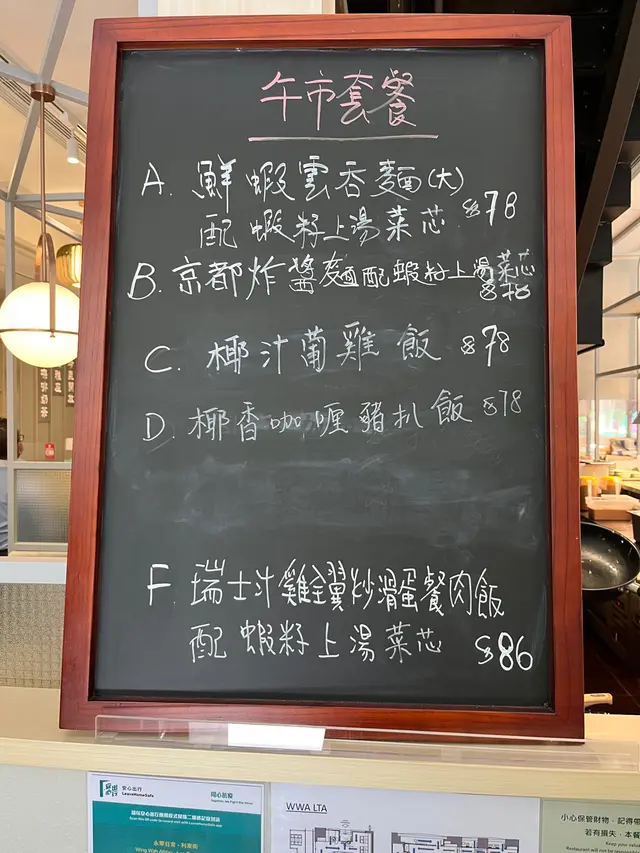 午市套餐
A. 鮮蝦雲吞麵(大)
配蝦籽上湯菜芯 $78
B. 京都炸醬麵配蝦籽上湯菜芯
$78
C. 椰汁葡雞飯 $78
D. 椰香咖喱豬扒飯 $78
F. 瑞士汁雞全翼炒滑蛋餐肉飯
配蝦籽上湯菜芯 $86
安心出行
LeaveHomeSafe
同心抗疫
WWA LTA
小心保管財物,記得帶
若有損失,本餐